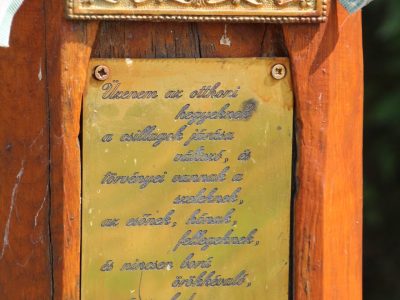 Üzenem az otthoni
hegyeknek
a csillagok járása
változó, és
törvényei vannak a
szeleknek,
az esőnek, hónak,
fellegeknek,
és nincsen ború
örökkévaló,